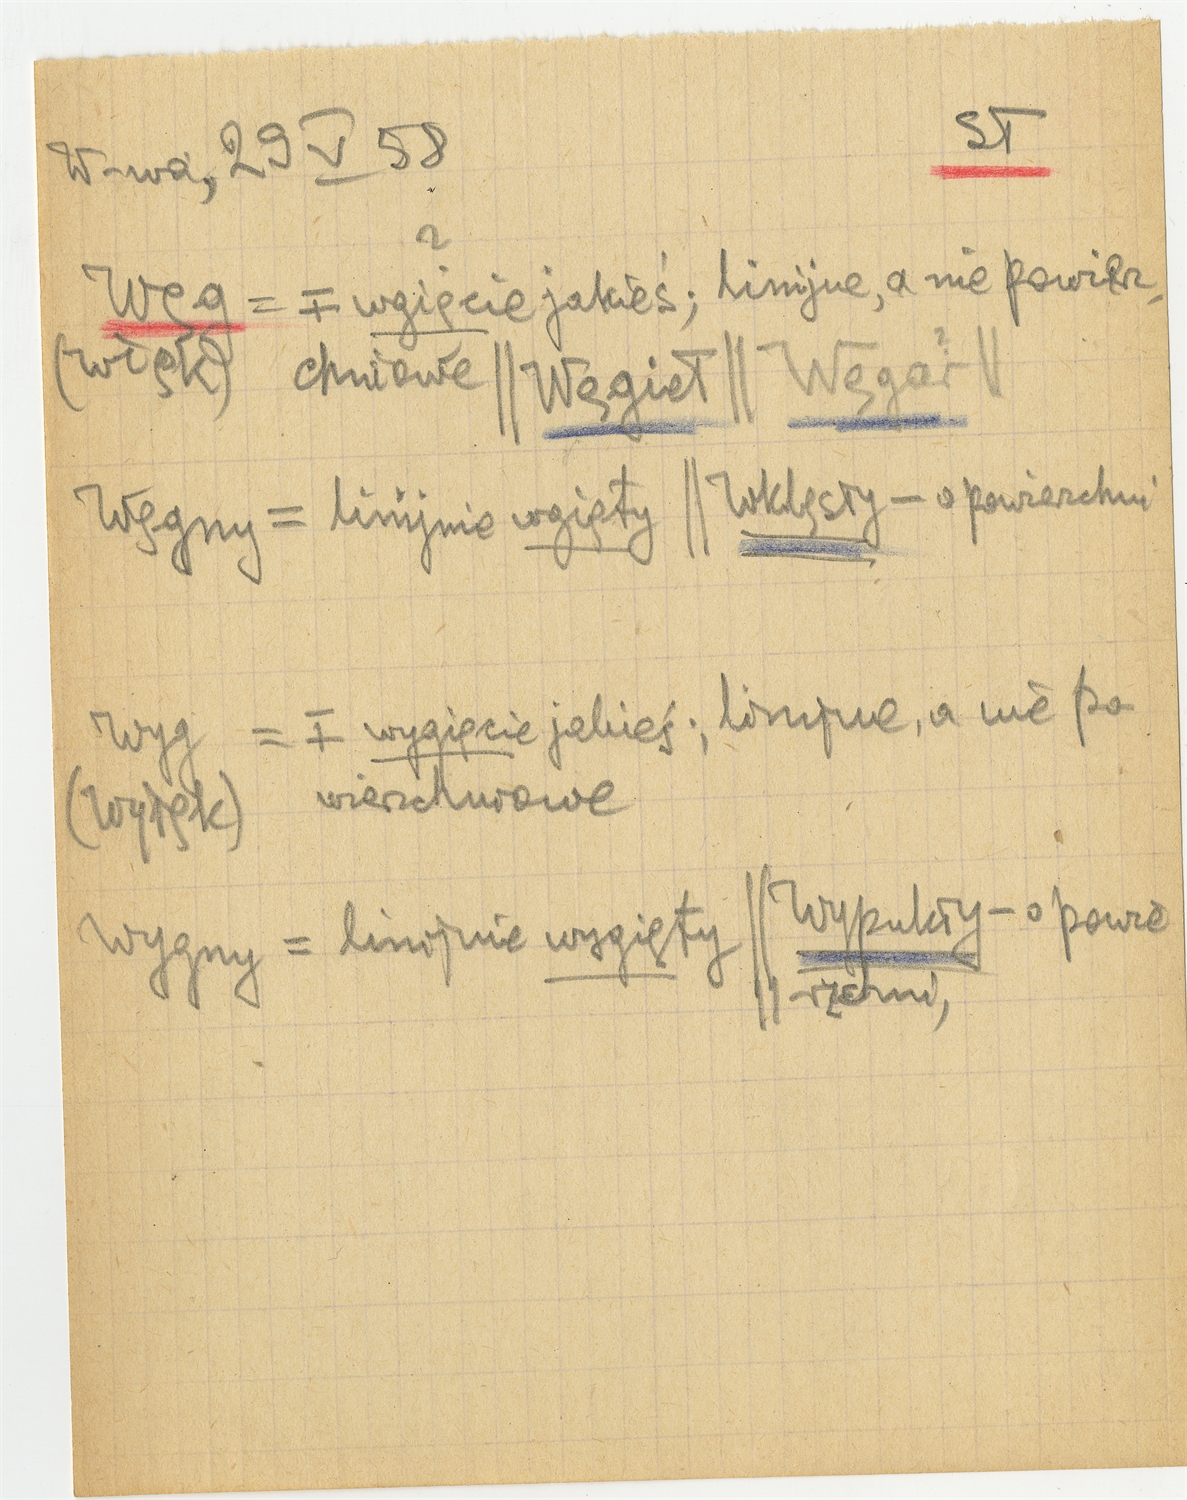 W-wa, 29 V 58 ST
?
Węg = ∓ wgięcie jakieś; linijne, a nie powierz-
(więk) chniowe || Węgieł || Węgar ? ||
Węgny = linijnie wgięty || Wklęsły – o powierzchni
Wyg = ∓ wygięcie jakieś; linijne, a nie po
wierzchniowe
Wygny = linijnie wygięty || Wypukły – o powie
-rzchni,